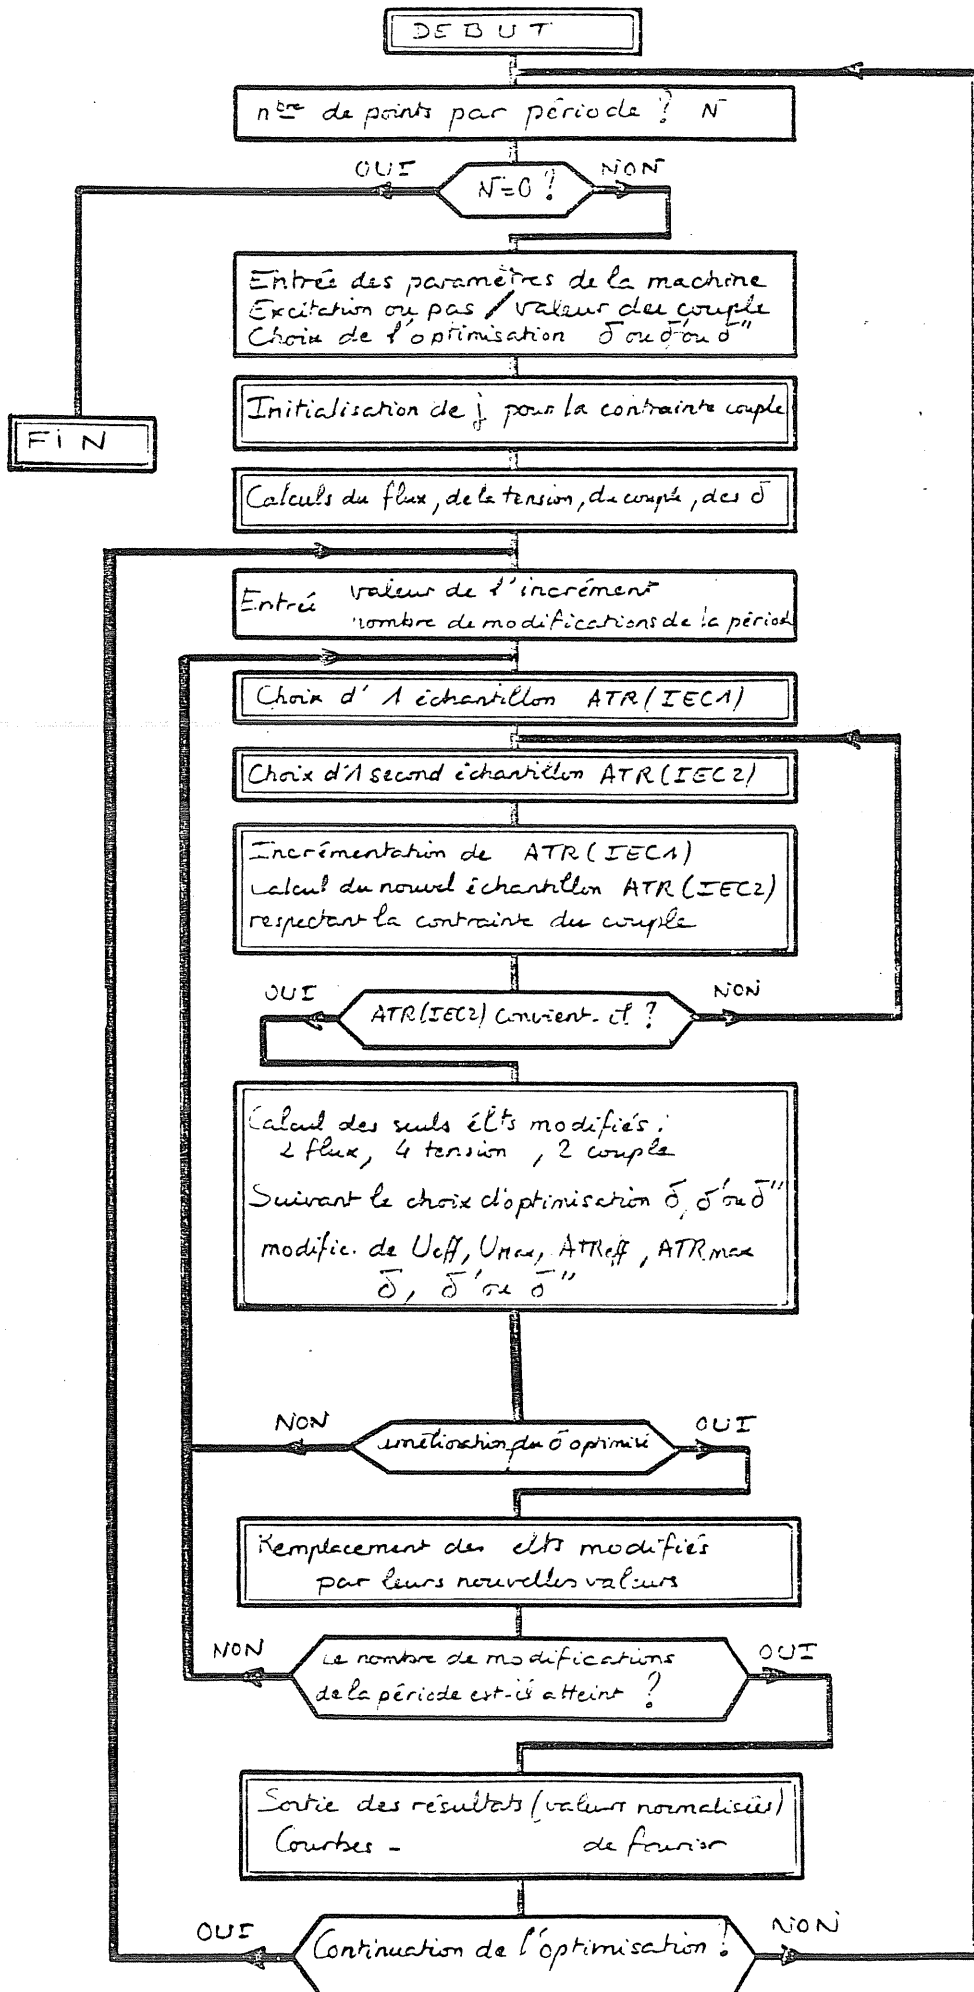 DEBUT
nbre de points par période ? N
OUI
NON
N=0 ?
Entrée des paramètres de la machine
Excitation ou pas / valeur du couple
Choix de l'optimisation δ ou δ' ou δ"
Initialisation de j pour la contrainte couple
FIN
Calculs du flux, de la tension, du couple, des δ
Entrée valeur de l'incrément
nombre de modifications de la périod
Choix d'1 échantillon ATR(IEC1)
Choix d'1 second échantillon ATR(IEC2)
Incrémentation de ATR(IEC1)
calcul du nouvel échantillon ATR(IEC2)
respectant la contrainte du couple
OUI
NON
ATR(IEC2) convient-il ?
Calcul des seuls élts modifiés :
2 flux, 4 tension , 2 couple
Suivant le choix d'optimisation δ, δ' ou δ"
modific. de Ueff, Umax, ATReff, ATRmax
δ, δ' ou δ"
NON
OUI
amélioration du δ optimisé
Remplacement des elts modifiés
par leurs nouvelles valeurs
NON
OUI
Le nombre de modifications
de la période est-il atteint ?
Sortie des résultats (valeurs normalisées)
Courbes - de fourier
OUI
NON
Continuation de l'optimisation ?